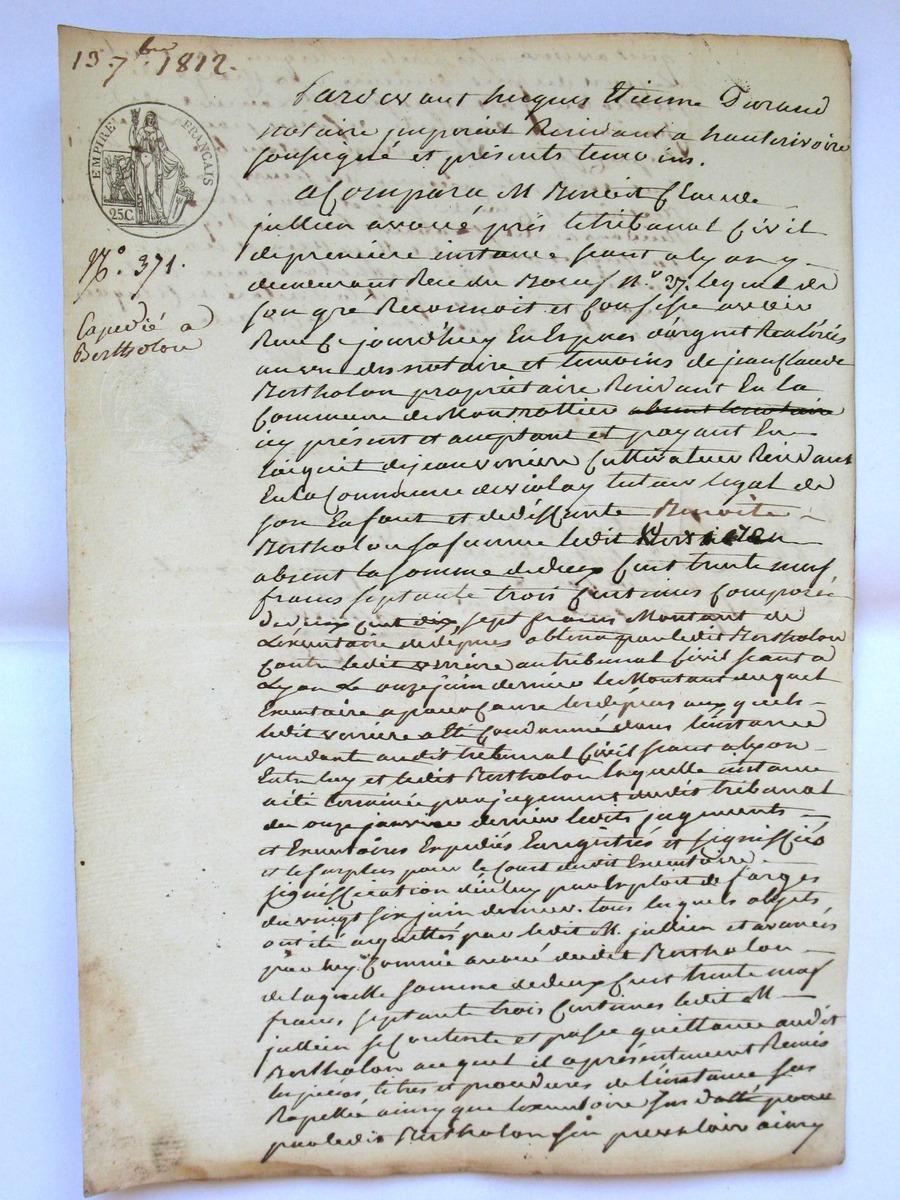 13. 7bre 1812.
EMPIRE FRANÇAIS
25C.
No. 371.
Expedié a
Bertholon
Pardevant Jacques Etienne Durand
Notaire imperial Residant a hauterivoire
soussigné et présents temoins.
a Comparu M Benoit Claude
jullien avoué près le tribunal Civil
de premiere instance séant a lyon y
demeurant Rue du Boeuf No. 37. lequel de
son gré Reconnoit et Confesse avoir
Reçu Ce jourd'huy En Espèces d'argent Realisés
au vu des notaire et temoins de jean Claude
Bertholon propriétaire Residant En la
Commune de Montrottier absent le notaire
icy présent et acceptant et payant En
l'acquit de jean verrière Cultivateur Residant
En la Commune de violay tuteur legal de
son Enfant et de deffunte Benoite
Bertholon sa femme ledit
absent la somme de deux Cent trente neuf
francs septante trois Centimes Composée
de deux Cent dix sept francs Montant de
L'exécutoire de dépens obtenu par ledit Bertholon
Contre ledit verrière au tribunal Civil séant a
Lyon Le onze juin dernier le Montant duquel
Exécutoire a pour Cause les dépens auxquels
ledit verrière a Eté Condamné dans l'instance
pendant audit tribunal Civil séant a lyon
Entre luy et ledit Bertholon laquelle instance
a été terminée par jugement dudit tribunal
du onze janvier dernier lesdits jugements
et Exécutoires Expediés Enregistrés et signiffiés
et le surplus pour le Cout dudit Exécutoire
signiffication d'iceluy par Exploit de farges
du vingt six juin dernier. tous lesquels objets
ont été acquittés par ledit M. jullien et avancés
par luy Comme avoué dudit Bertholon
de laquelle somme de deux Cent trente neuf
francs septante trois Centimes ledit M
jullien se Contente et passe quittance audit
Bertholon auquel il a présentement Remis
les pièces, titres et procedures de l'instance sus
Rapellée ainsy que l'exécutoire sus datté pour
par ledit Bertholon s'en prevaloir ainsy